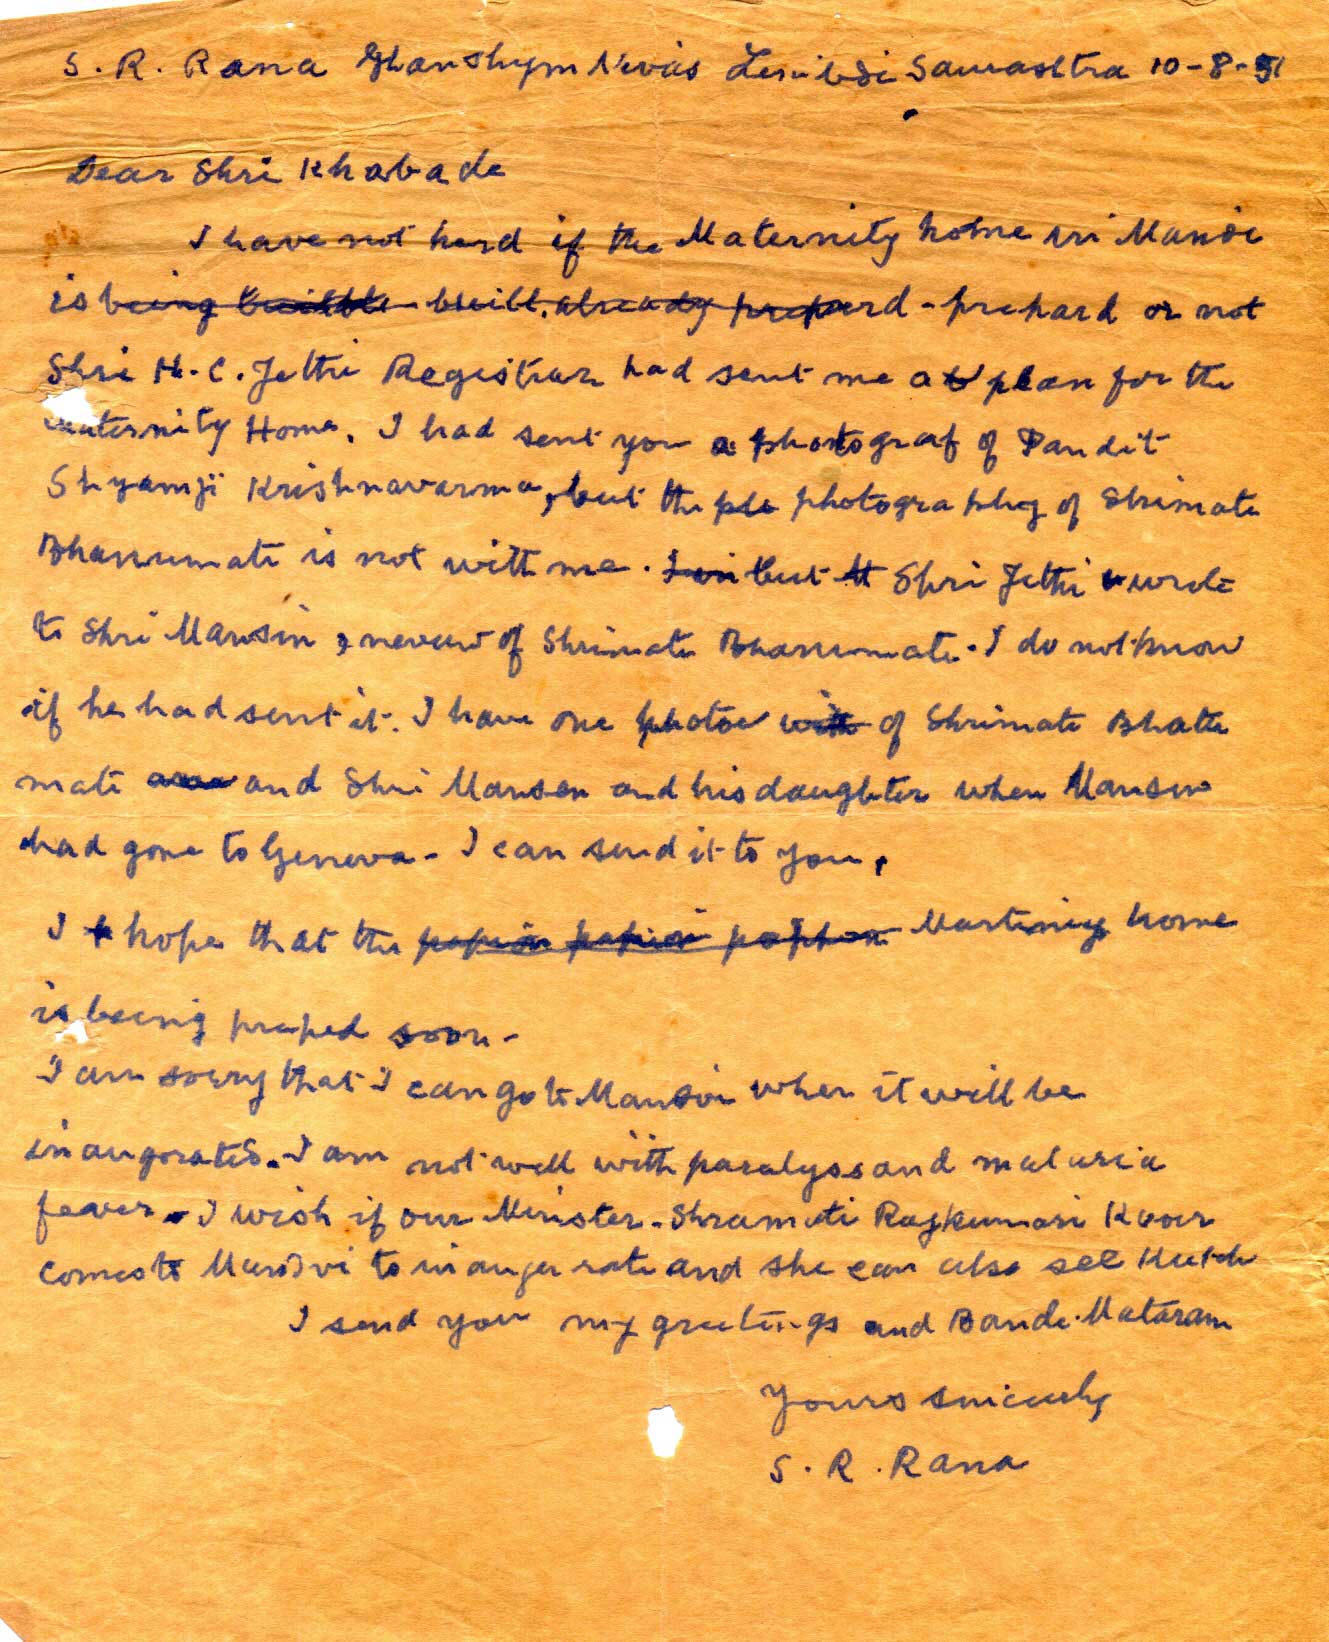 S. R. Rana Ghanshym Nivas Limibdi Saurashtra 10-8-51
Dear Shri Khabade
I have not herd if the Maternity home in Mandi
is being built already preperd - prepard or not
Shri H. C. Jethi Registrar had sent me a plan for the
Maternity Home. I had sent you a photograf of Pandit
Shyamji Krishnavarma, but the photography of Shrimati
Bhanumati is not with me. but Shri Jethi wrote
to Shri Mansin, neveu of Shrimati Bhanumati. I do not know
if he had sent it. I have one photoe with of Shrimati Bhatti
mati and Shri Mansen and his daughter when Mansin
had gone to Geneva - I can send it to you,
I hope that the Martiniy home
is being preped soon -
I am sorry that I can go to Manvi when it will be
inaugorated. I am not well with paralyss and malaria
feaver. I wish if our Minister. Shramati Rajkumari Kvour
comes to Mandvi to inaugerrate and she can also see Kutch
I send you my greetings and Bande. Mataram
Yours sincerely
S. R. Rana